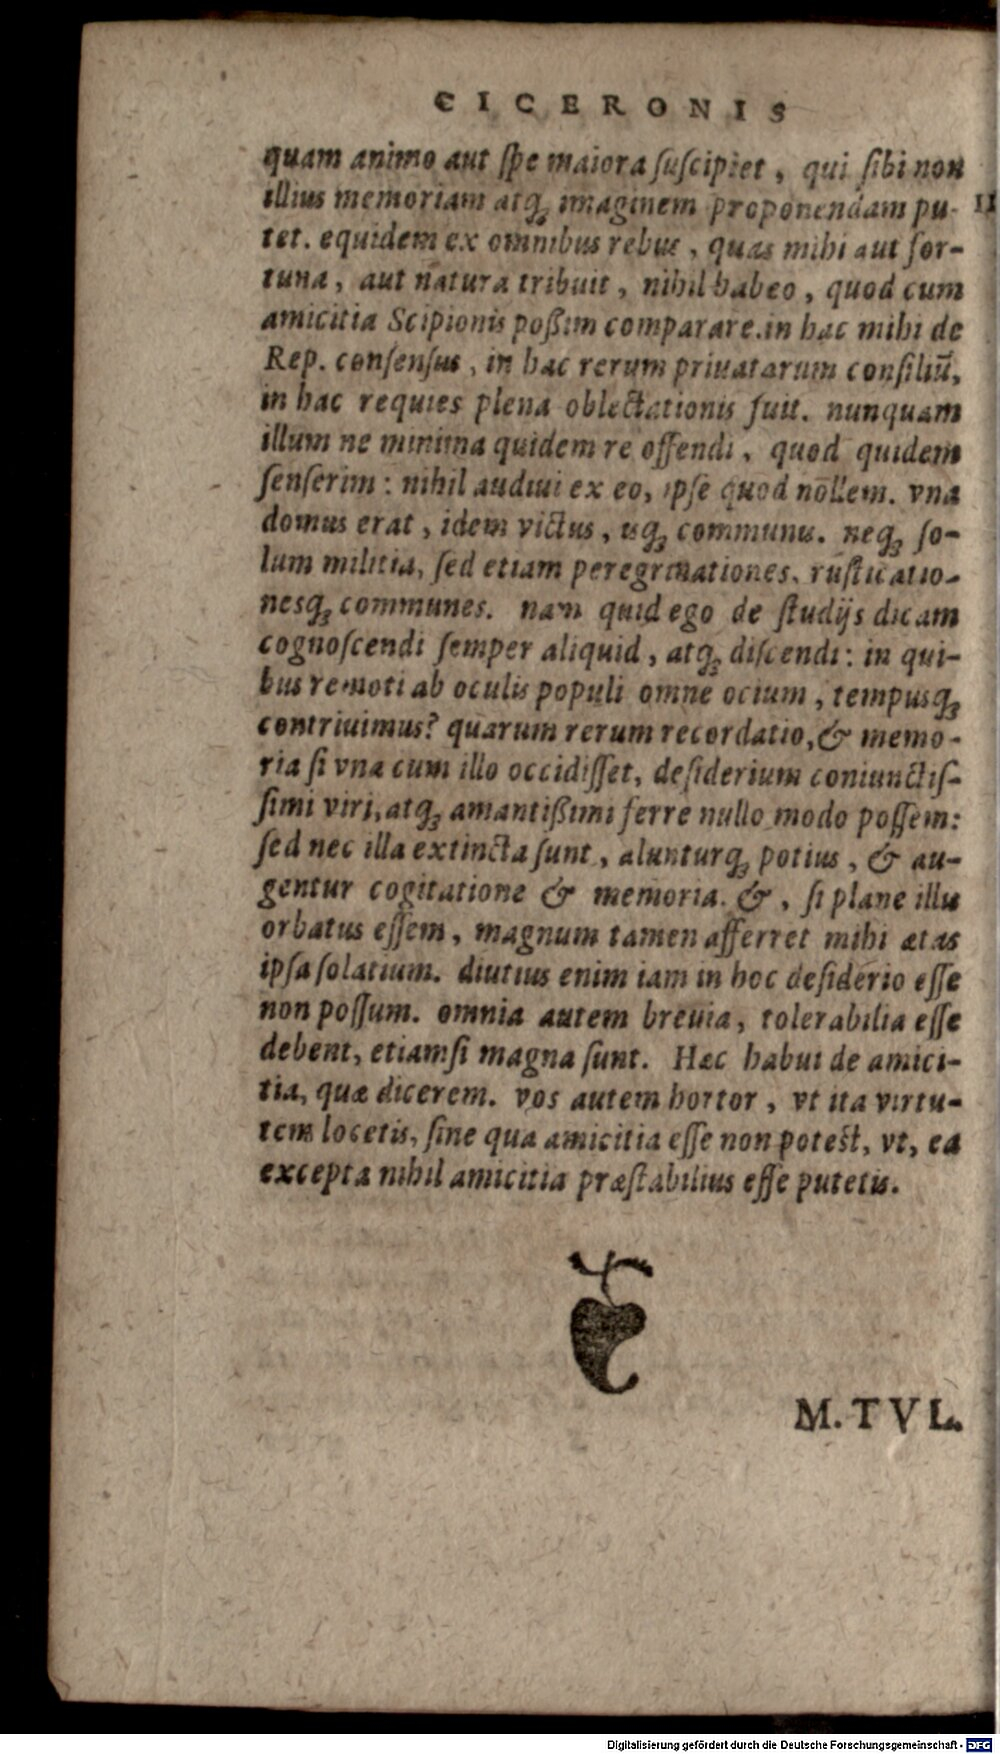 CICERONIS
quam animo aut ſpe maiora ſuſcipiet, qui ſibi non
illius memoriam atq́; imaginem proponendam pu-
tet. equidem ex omnibus rebus, quas mihi aut for-
tuna, aut natura tribuit, nihil habeo, quod cum
amicitia Scipionis poßim comparare. in hac mihi de
Rep. conſenſus, in hac rerum priuatarum conſiliū,
in hac requies plena oblectationis fuit. nunquam
illum ne minima quidem re offendi, quod quidem
ſenſerim: nihil audiui ex eo, ipſe quod nollem. vna
domus erat, idem victus, isq́; communis. neq́; ſo-
lum militia, ſed etiam peregrinationes, ruſticatio-
nesq́; communes. nam quid ego de ſtudijs dicam
cognoſcendi ſemper aliquid, atq́; diſcendi: in qui-
bus remoti ab oculis populi omne ocium, tempusq́;
contriuimus? quarum rerum recordatio, & memo-
ria ſi vna cum illo occidiſſet, deſiderium coniunctiſ-
ſimi viri, atq́; amantißimi ferre nullo modo poſſem:
ſed nec illa extincta ſunt, alunturq́; potius, & au-
gentur cogitatione & memoria. &, ſi plane illis
orbatus eſſem, magnum tamen afferret mihi ætas
ipſa ſolatium. diutius enim iam in hoc deſiderio eſſe
non poſſum. omnia autem breuia, tolerabilia eſſe
debent, etiamſi magna ſunt. Hæc habui de amici-
tia, quæ dicerem. vos autem hortor, vt ita virtu-
tem locetis, ſine qua amicitia eſſe non poteſt, vt, ea
excepta nihil amicitia præſtabilius eſſe putetis.
M. TVL.
Digitalisierung gefördert durch die Deutsche Forschungsgemeinschaft - DFG